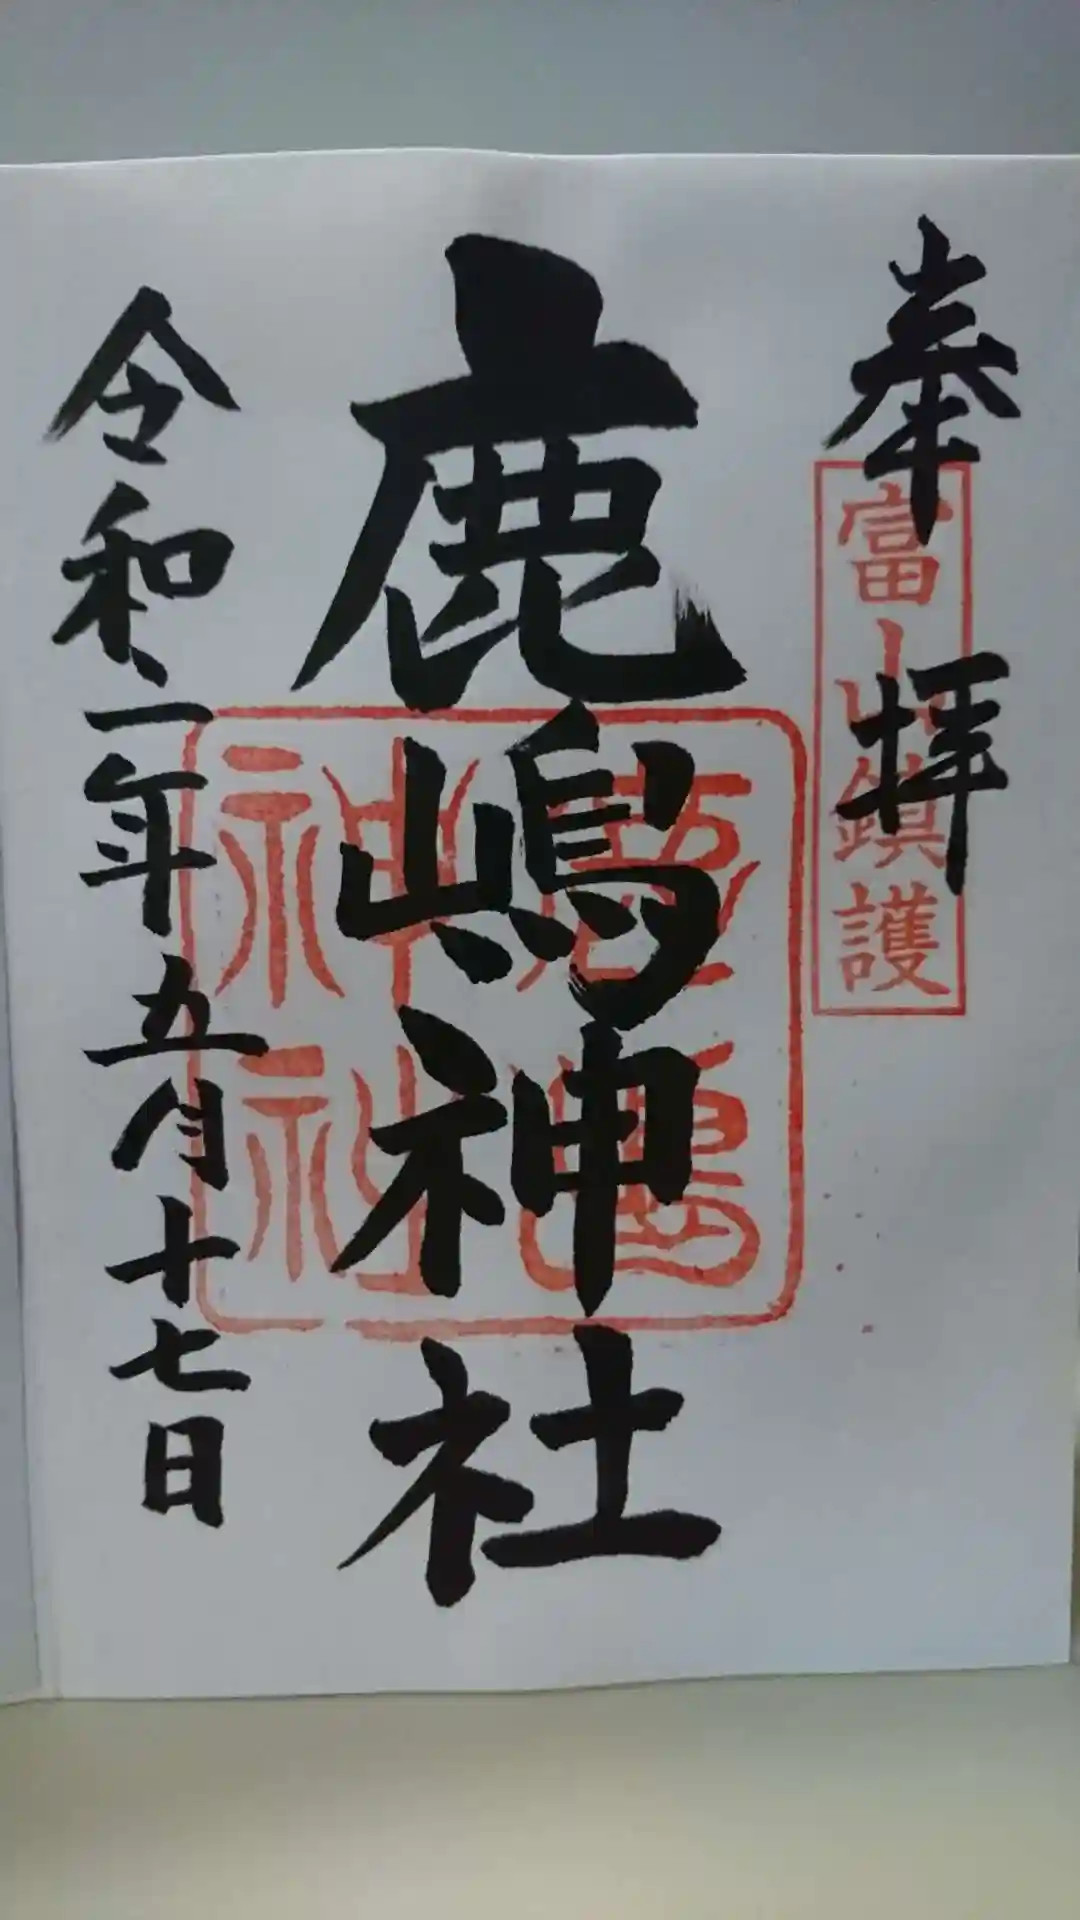 奉拝
富山鎮護
鹿嶋神社
鹿嶋
神社
令和二年五月十七日